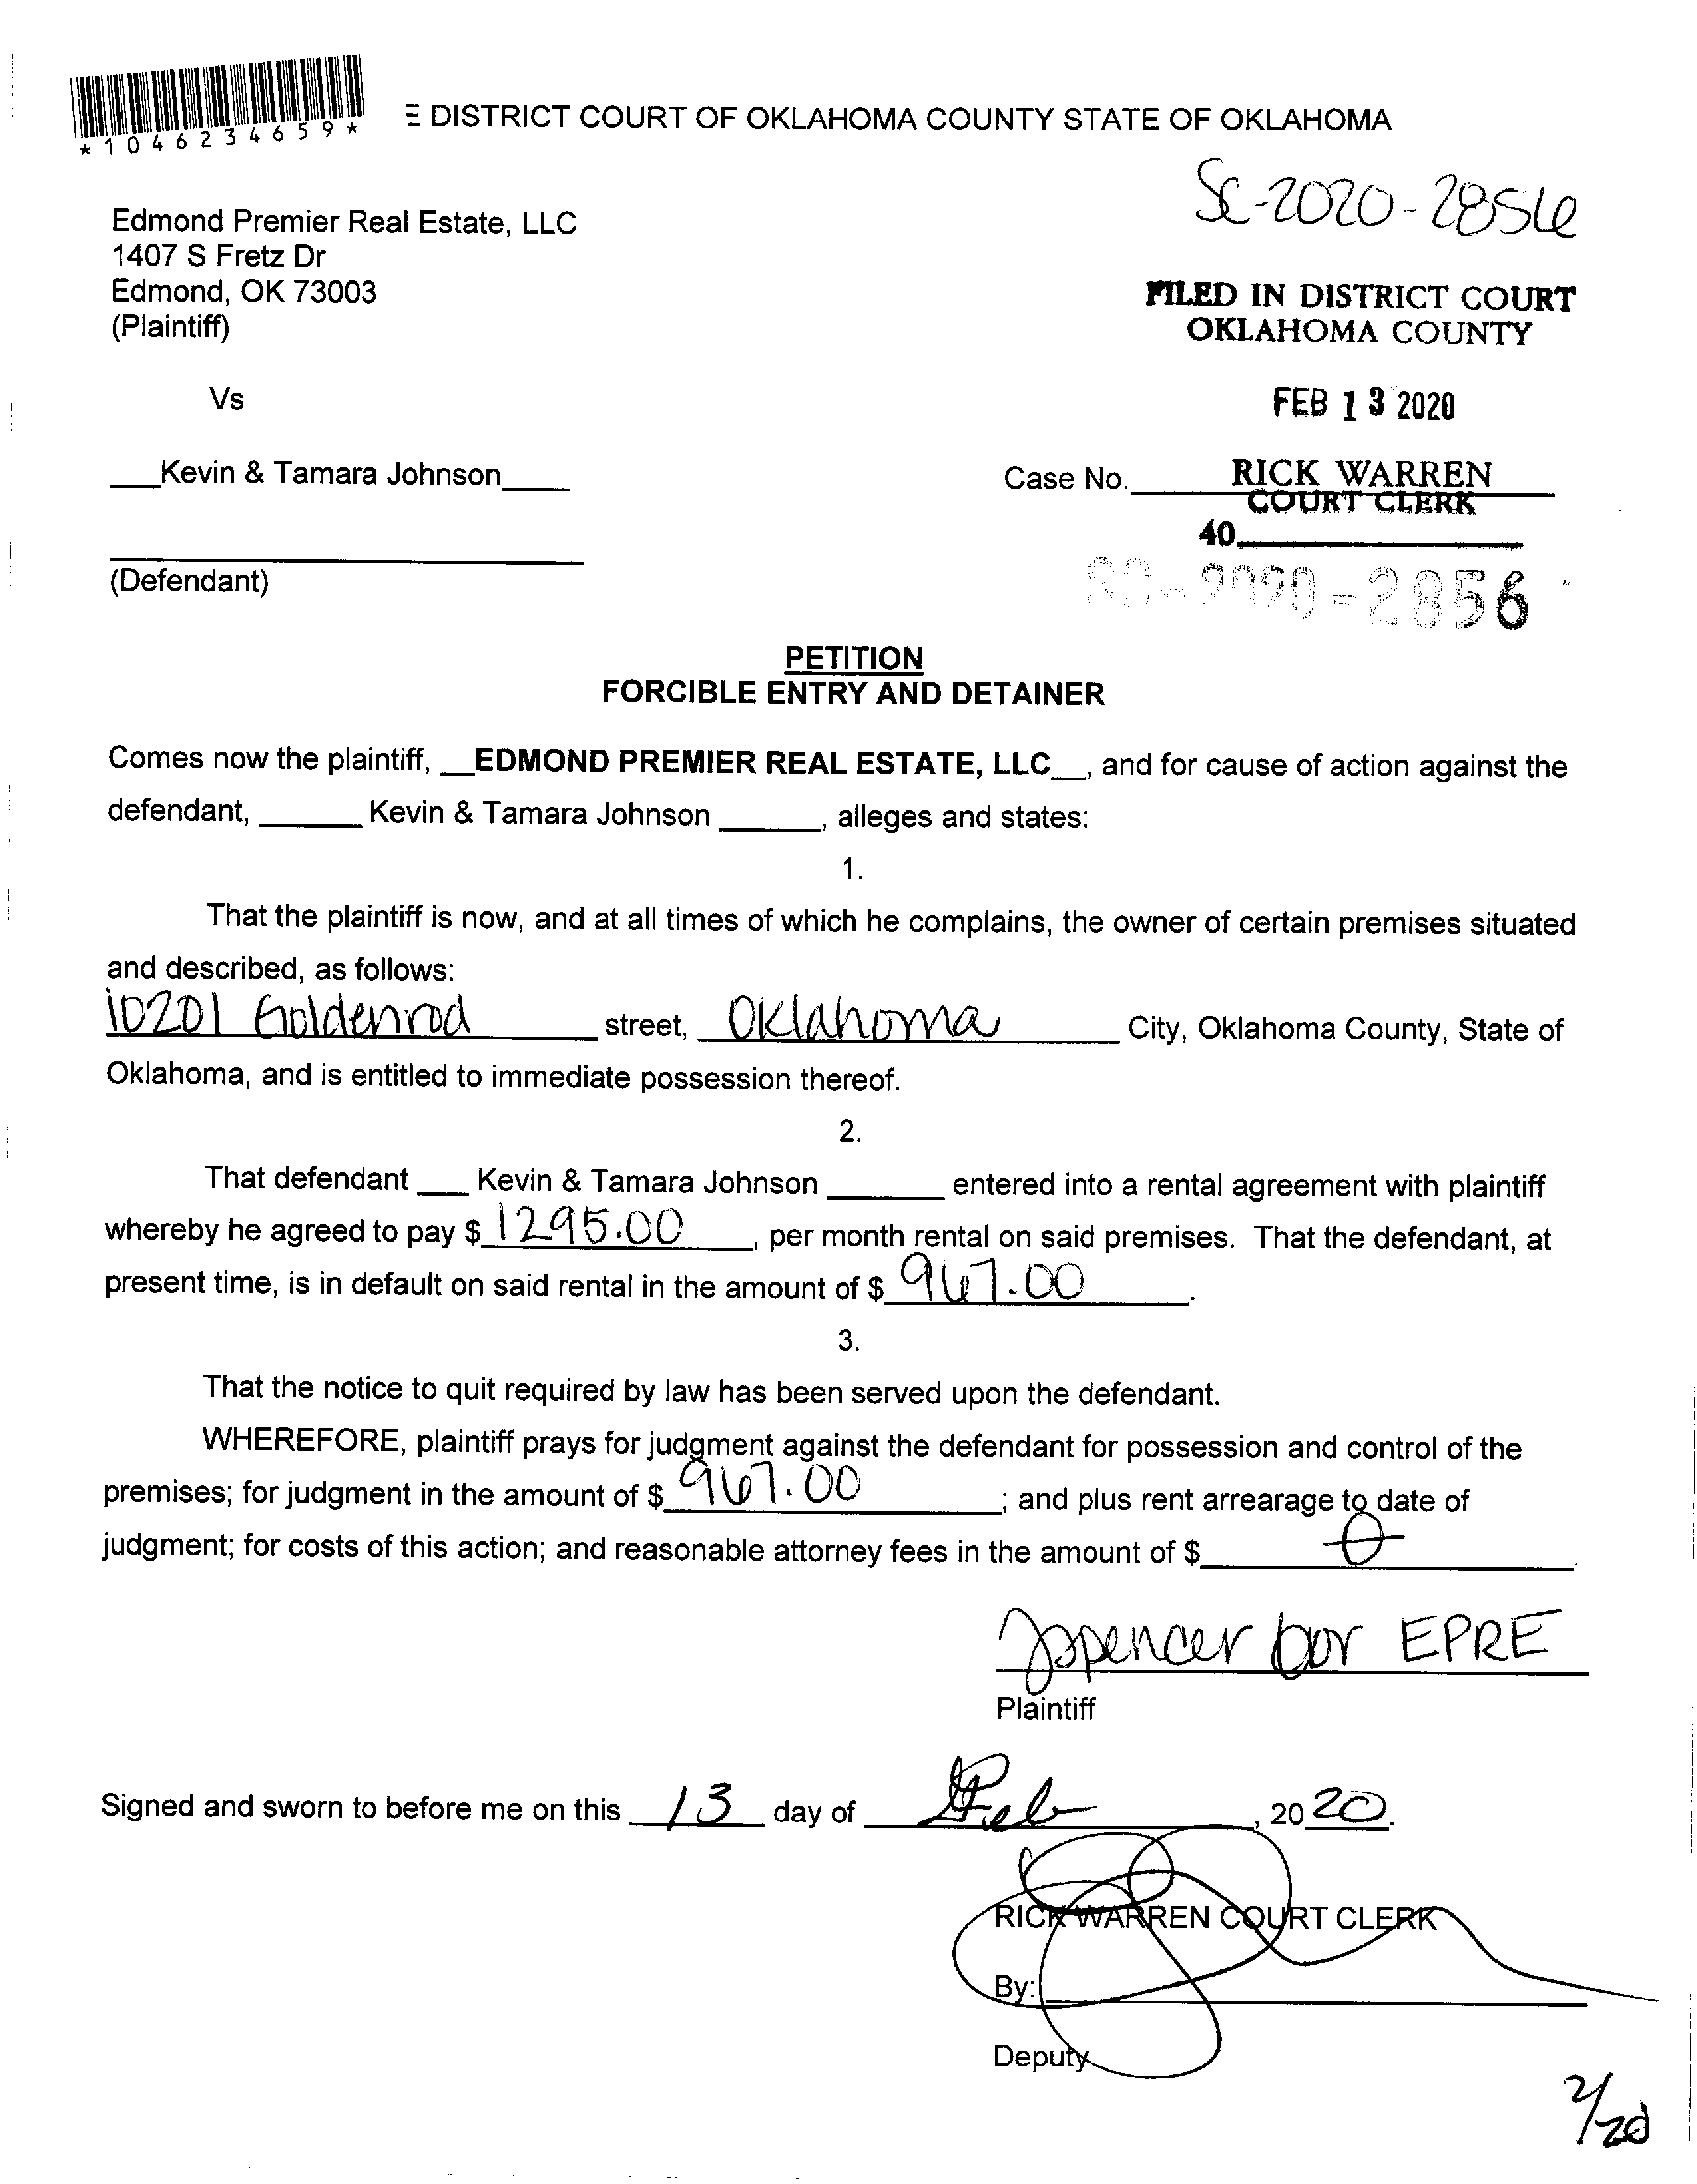 *1046234659*
E DISTRICT COURT OF OKLAHOMA COUNTY STATE OF OKLAHOMA
SC-2020-2856
Edmond Premier Real Estate, LLC
1407 S Fretz Dr
Edmond, OK 73003
(Plaintiff)
FILED IN DISTRICT COURT
OKLAHOMA COUNTY
Vs
FEB 13 2020
___Kevin & Tamara Johnson____
Case No. RICK WARREN
COURT CLERK
40
(Defendant)
SC-2020-2856
PETITION
FORCIBLE ENTRY AND DETAINER
Comes now the plaintiff, __EDMOND PREMIER REAL ESTATE, LLC__, and for cause of action against the
defendant, ______ Kevin & Tamara Johnson ______, alleges and states:
1.
That the plaintiff is now, and at all times of which he complains, the owner of certain premises situated
and described, as follows:
10201 Goldenrod street, Oklahoma City, Oklahoma County, State of
Oklahoma, and is entitled to immediate possession thereof.
2.
That defendant ___ Kevin & Tamara Johnson _______ entered into a rental agreement with plaintiff
whereby he agreed to pay $ 1295.00, per month rental on said premises. That the defendant, at
present time, is in default on said rental in the amount of $ 967.00.
3.
That the notice to quit required by law has been served upon the defendant.
WHEREFORE, plaintiff prays for judgment against the defendant for possession and control of the
premises; for judgment in the amount of $ 967.00; and plus rent arrearage to date of
judgment; for costs of this action; and reasonable attorney fees in the amount of $ 0.
Jspencer for EPRE
Plaintiff
Signed and sworn to before me on this 13 day of Feb, 2020.
RICK WARREN COURT CLERK
By:
Deputy
2/20